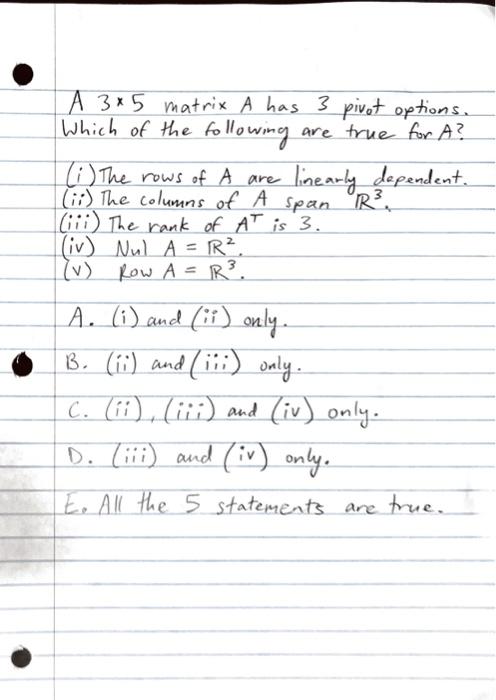 A 3×5 matrix A has 3 pivot options.
Which of the following are true for A?
(i) The rows of A are linearly dependent.
(ii) The columns of A span ℝ³.
(iii) The rank of Aᵀ is 3.
(iv) Nul A = ℝ².
(v) Row A = ℝ³.
A. (i) and (ii) only.
B. (ii) and (iii) only.
C. (ii), (iii) and (iv) only.
D. (iii) and (iv) only.
E. All the 5 statements are true.